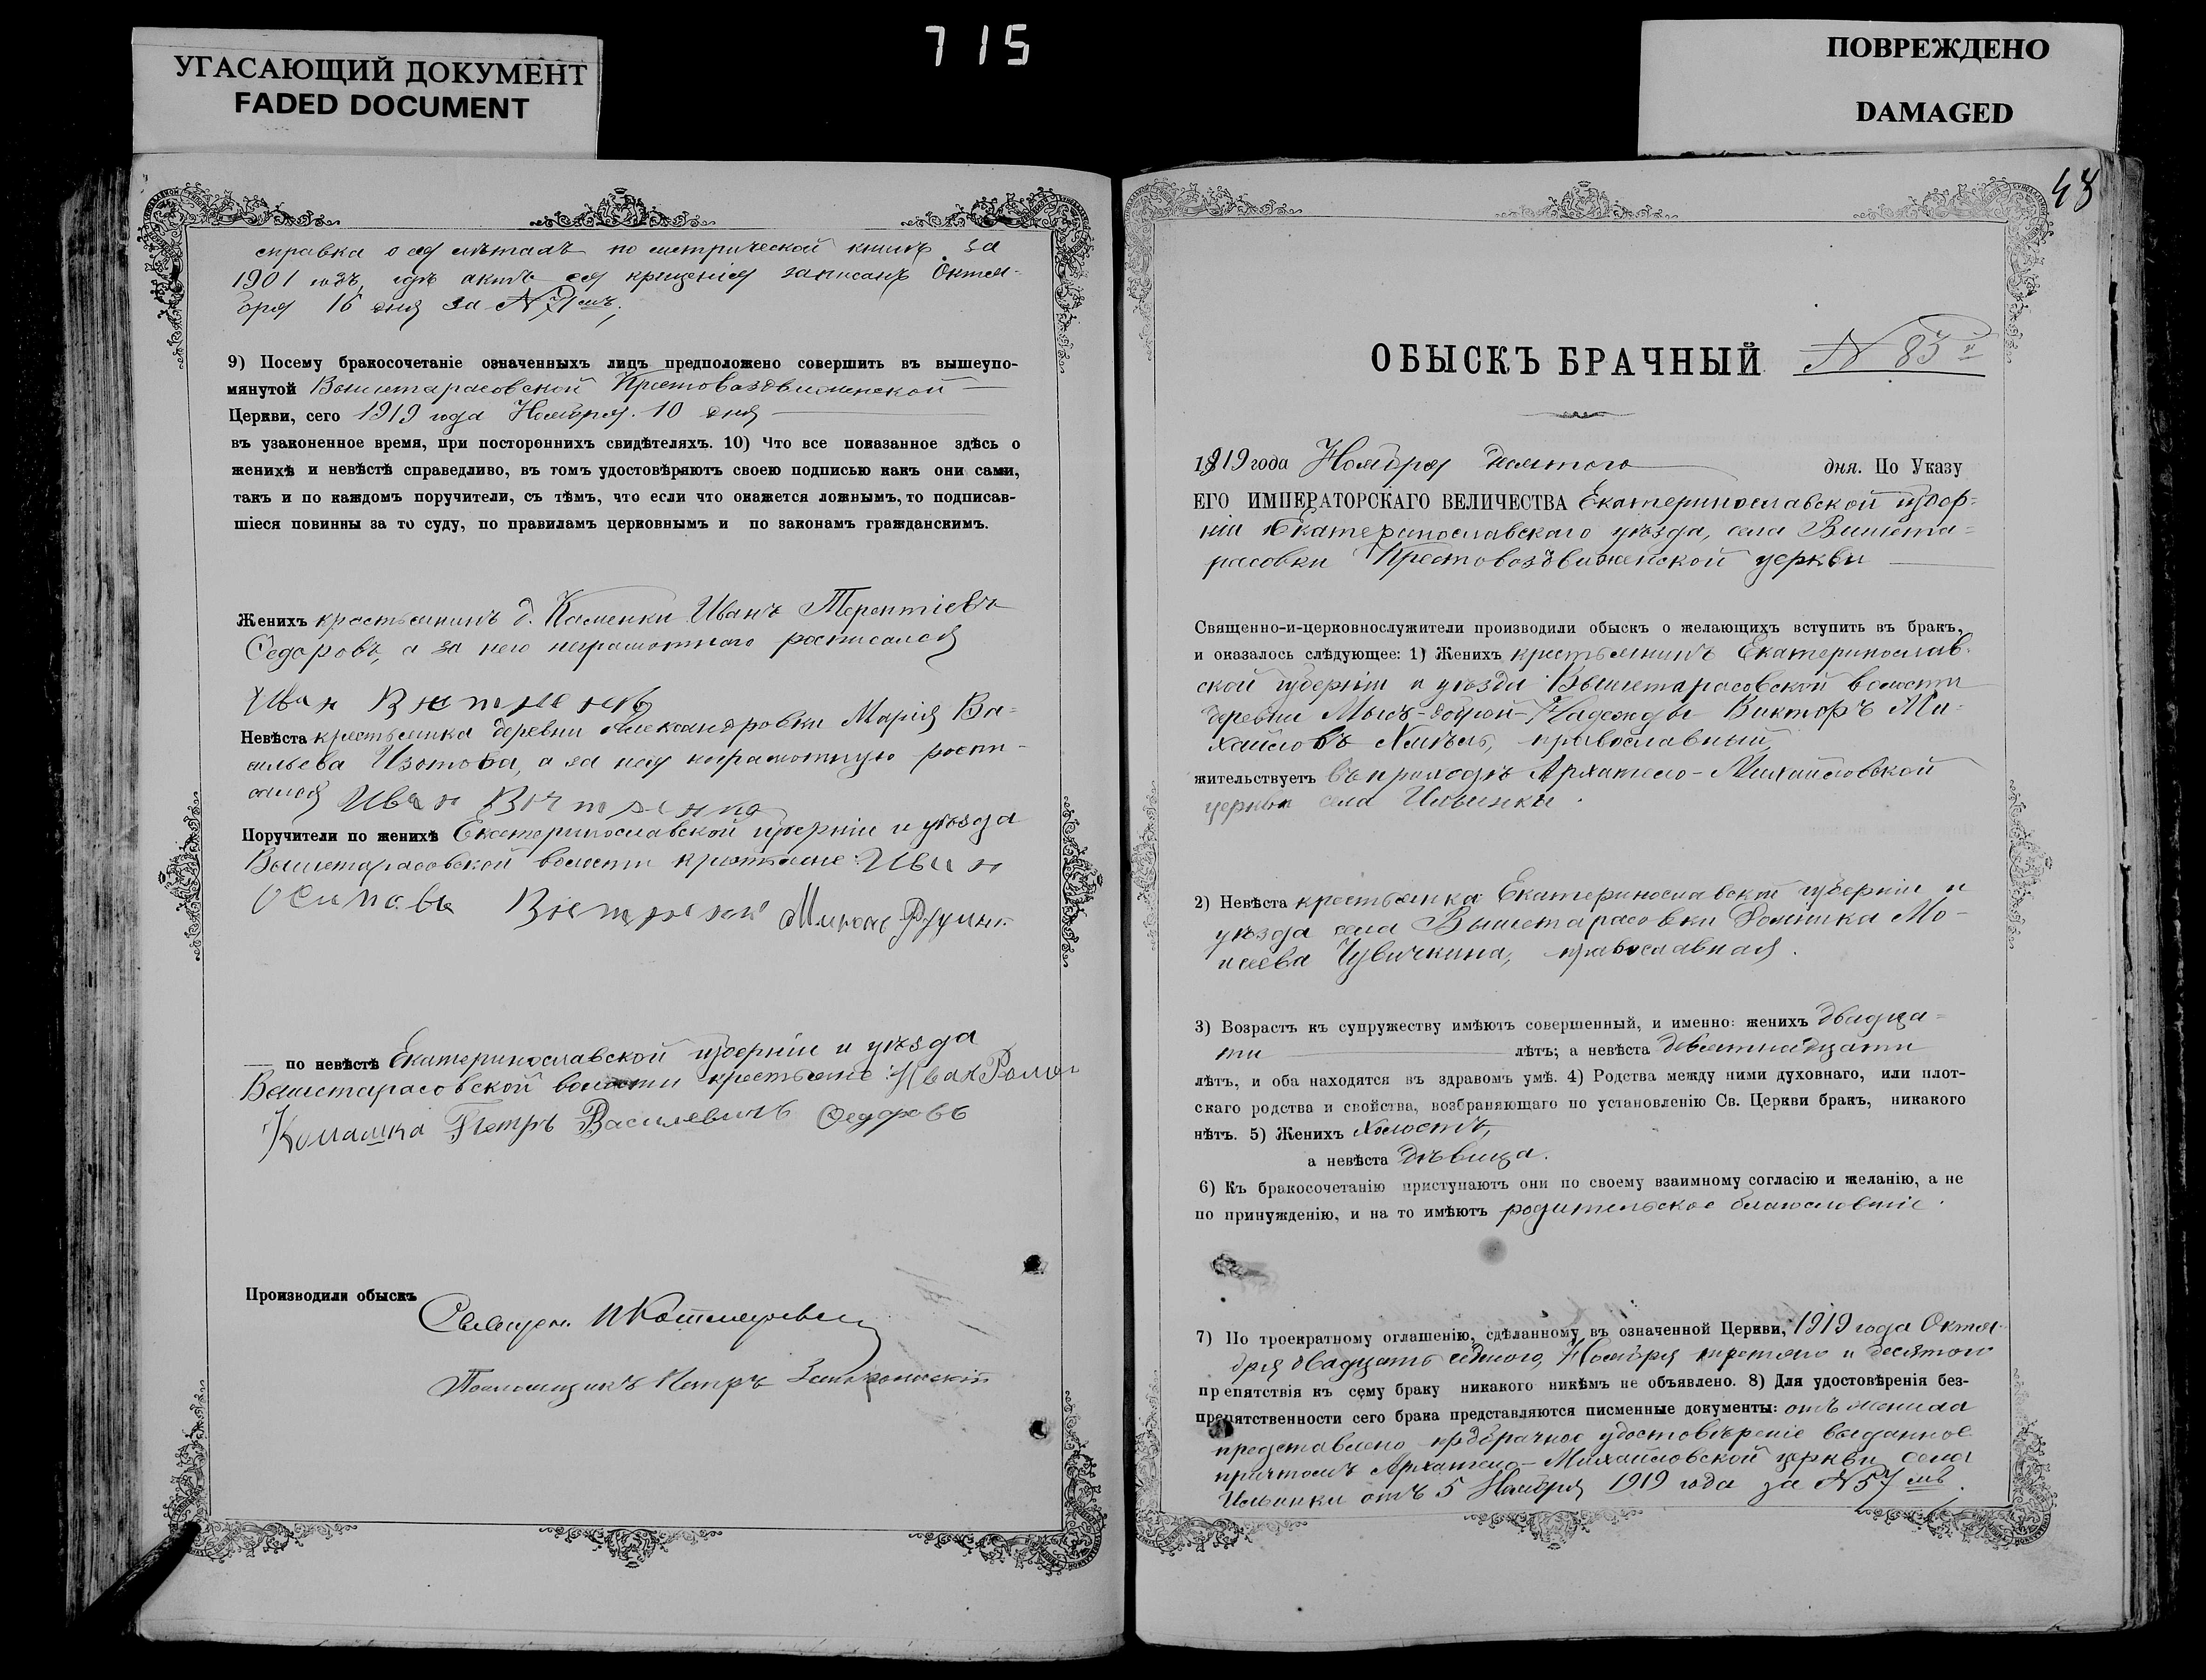 715
УГАСАЮЩИЙ ДОКУМЕНТ
FADED DOCUMENT
ПОВРЕЖДЕНО
DAMAGED
справка о ея лѣтахъ по метрической книгѣ за
1901 годъ, гдѣ актъ ея крещенія записанъ Октя-
бря 16 дня за №71мъ;
9) Посему бракосочетаніе означенныхъ лицъ предположено совершить въ вышеупо-
мянутой Вышетарасовской Крестовоздвиженской
Церкви, сего 1919 года Ноября 10 дня
въ узаконенное время, при постороннихъ свидѣтеляхъ. 10) Что все показанное здѣсь о
женихѣ и невѣстѣ справедливо, въ томъ удостовѣряютъ своею подписью какъ они сами,
такъ и по каждомъ поручители, съ тѣмъ, что если что окажется ложнымъ, то подписав-
шіеся повинны за то суду, по правиламъ церковнымъ и по законамъ гражданскимъ.
Женихъ крестьянинъ д. Каменки Иванъ Терентіевъ
Федоровъ, а за него неграмотного росписался
Иван
Невѣста крестьянка деревни Александровки Марія Ва-
сильева Изотова, а за нея неграмотную роспи-
сался Иван
Поручители по женихѣ Екатеринославской губерніи и уѣзда
Вышетарасовской волости крестьяне: Иван
по невѣстѣ Екатеринославской губерніи и уѣзда
Вышетарасовской волости крестьяне: Иван
Петръ Василевичъ Федоровъ
Производили обыскъ
Священ.
Псаломщикъ Петръ
48
ОБЫСКЪ БРАЧНЫЙ № 83й
1919 года Ноября десятого дня. По Указу
ЕГО ИМПЕРАТОРСКАГО ВЕЛИЧЕСТВА Екатеринославской губер-
ніи Екатеринославскаго уѣзда, села Вышета-
расовки Крестовоздвиженской церкви
Священно-и-церковнослужители производили обыскъ о желающихъ вступить въ бракъ,
и оказалось слѣдующее: 1) Женихъ крестьянинъ Екатеринослав-
ской губерніи и уѣзда Вышетарасовской волости
деревни Мысъ-Доброй-Надежды Викторъ Ми-
хайловъ Хмѣль, православный,
жительствуетъ въ приходѣ Архангело-Михайловской
церкви села Ильинки.
2) Невѣста крестьянка Екатеринославской губерніи и
уѣзда села Вышетарасовки Домника Мо-
исеева Чувичкина, православная.
3) Возрастъ къ супружеству имѣютъ совершенный, и именно: женихъ двадца-
ти лѣтъ; а невѣста девятнадцати
лѣтъ, и оба находятся въ здравомъ умѣ. 4) Родства между ними духовнаго, или плот-
скаго родства и свойства, возбраняющаго по установленію Св. Церкви бракъ, никакого
нѣтъ. 5) Женихъ холостъ,
а невѣста дѣвица.
6) Къ бракосочетанію приступаютъ они по своему взаимному согласію и желанію, а не
по принужденію, и на то имѣютъ родительское благословеніе.
7) По троекратному оглашенію, сдѣланному въ означенной Церкви, 1919 года Октя-
бря двадцать седьмого, Ноября третьяго и десятого
препятствія къ сему браку никакого никѣмъ не объявлено. 8) Для удостовѣренія без-
препятственности сего брака представляются писменные документы: отъ жениха
представлено предбрачное удостовѣреніе выданное
причтомъ Архангело-Михайловской церкви села
Ильинки отъ 5 Ноября 1919 года за №57мъ.